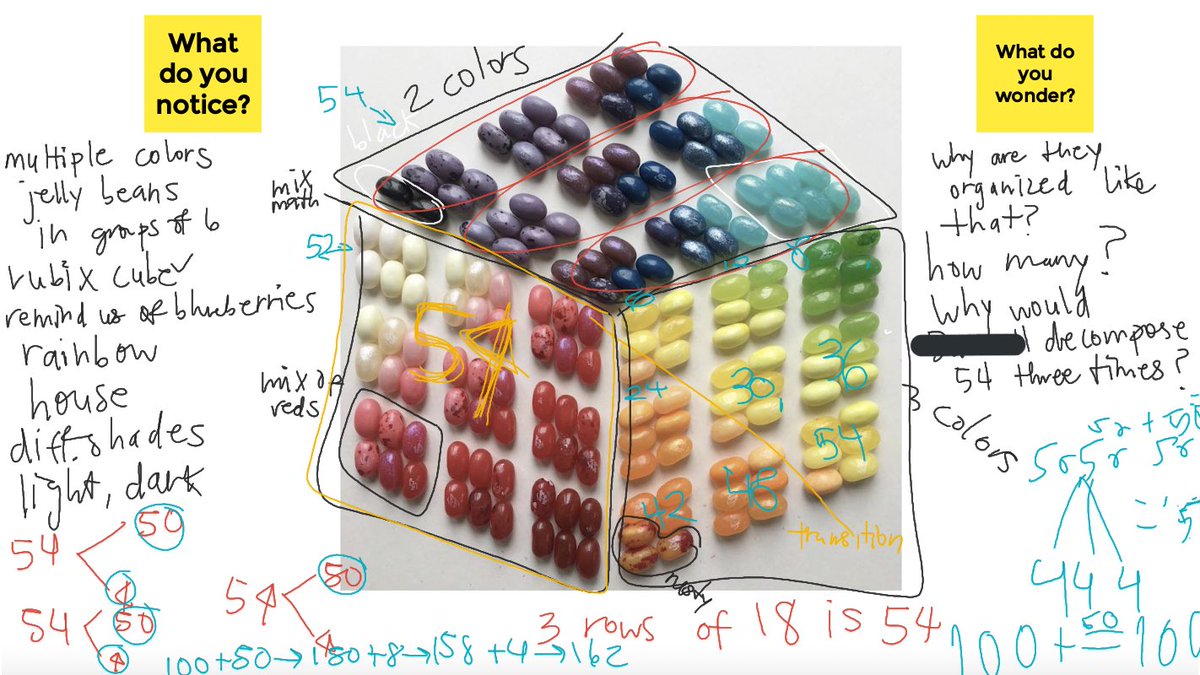 What
do you
notice?
multiple colors
jelly beans
in groups of 6
rubix cube
remind us of blueberries
rainbow
house
diff. shades
light, dark
54
50
4
54
50
4
54
50
4
100+50→150+8→158+4→162
54
2 colors
black
mix
math
52
54
mix of
reds
6
18
24
30
36
42
48
54
transition
nasty
3 colors
3 rows of 18 is 54
What do
you
wonder?
why are they
organized like
that?
how many?
Why would
decompose
54 three times?
4 4 4
50
100 +